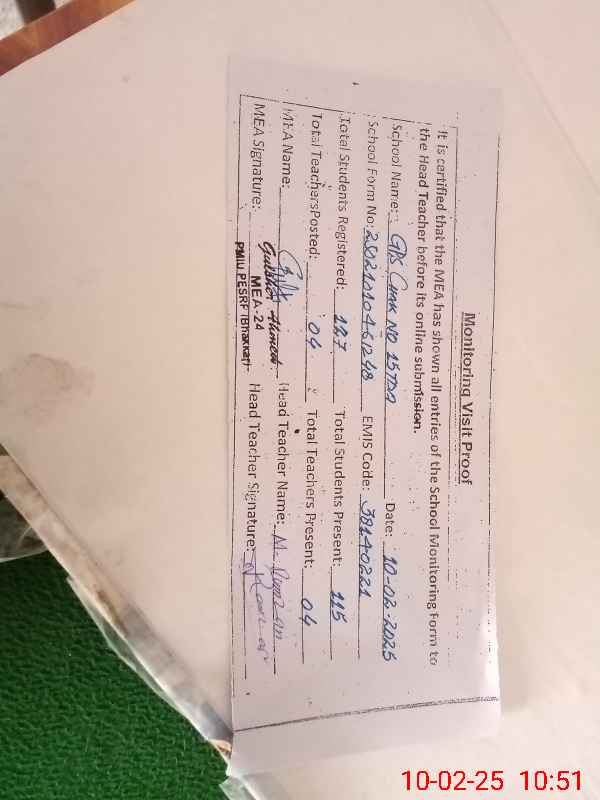 Monitoring Visit Proof
It is certified that the MEA has shown all entries of the School Monitoring Form to
the Head Teacher before its online submission.
School Name: GPS Chak NO 15TDA Date: 10-02-2025
School Form No: 25021010461248 EMIS Code: 38140221
Total Students Registered: 127 Total Students Present: 115
Total TeachersPosted: 04 Total Teachers Present: 04
MEA Name: Gulsher Ahmed Head Teacher Name: M.
MEA Signature: MEA-24 Head Teacher Signature:
PMIU PESRP (Bhakkar)
10-02-25 10:51